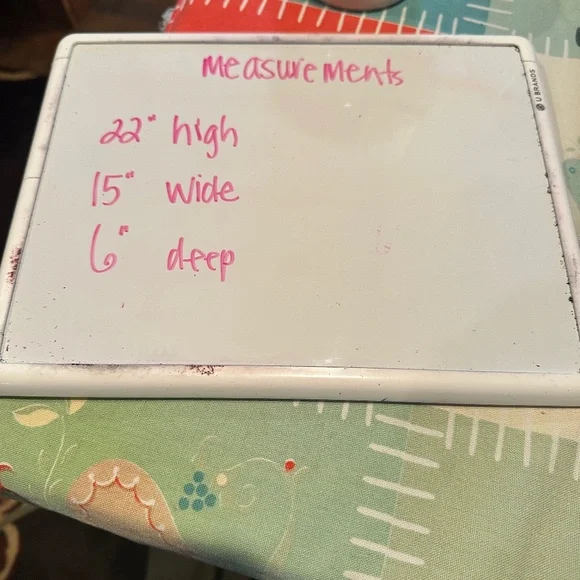 measurements
22" high
15" wide
6" deep
U BRANDS